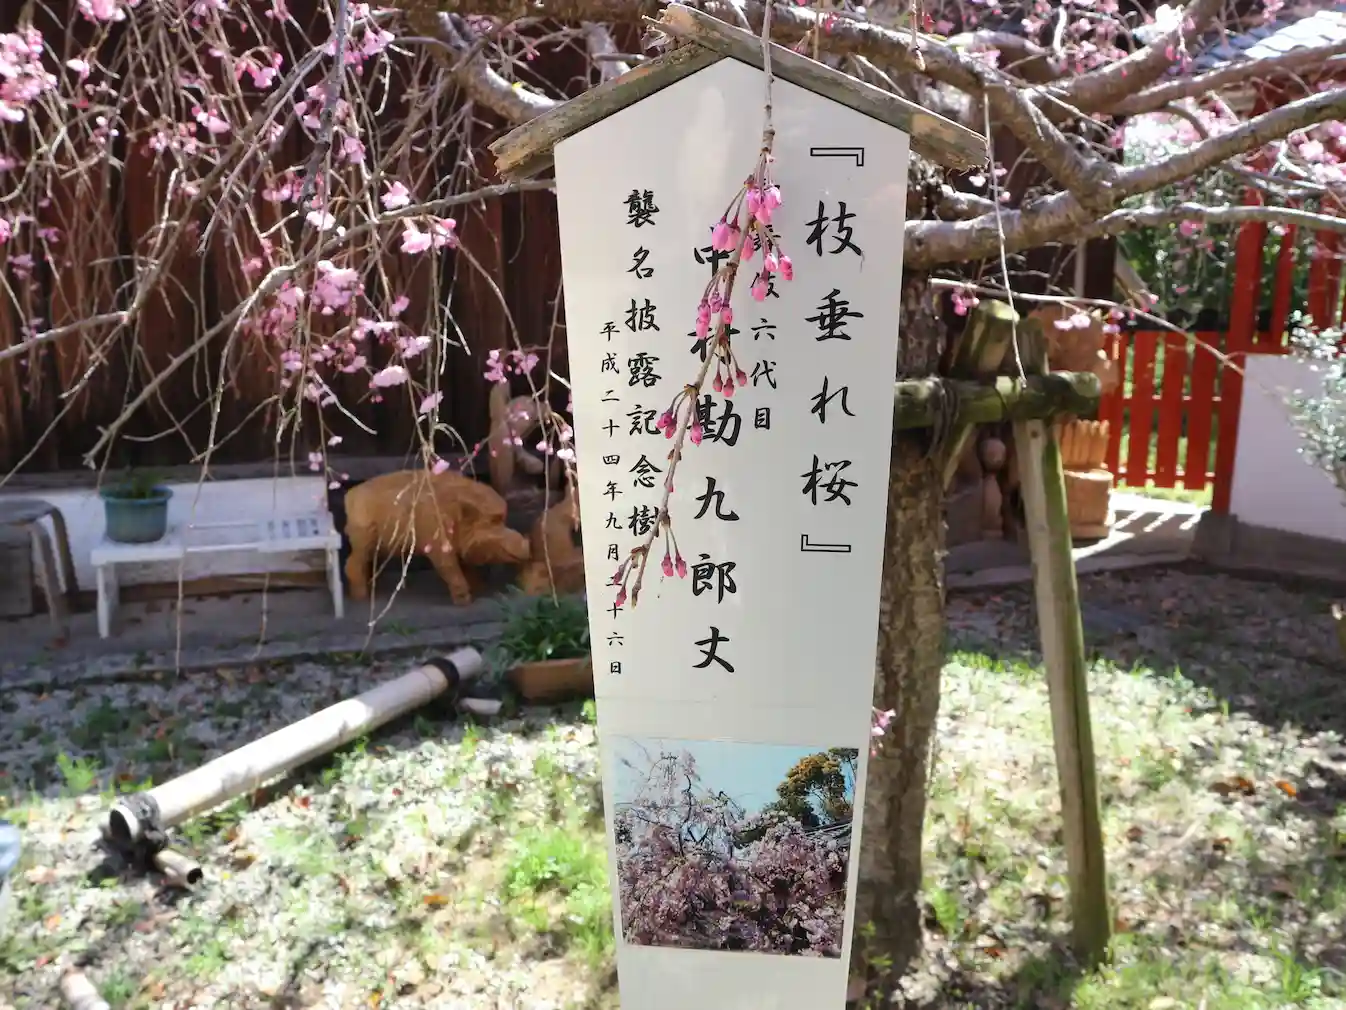 『枝垂れ桜』
六代目
中村勘九郎丈
襲名披露記念樹
平成二十四年九月二十六日